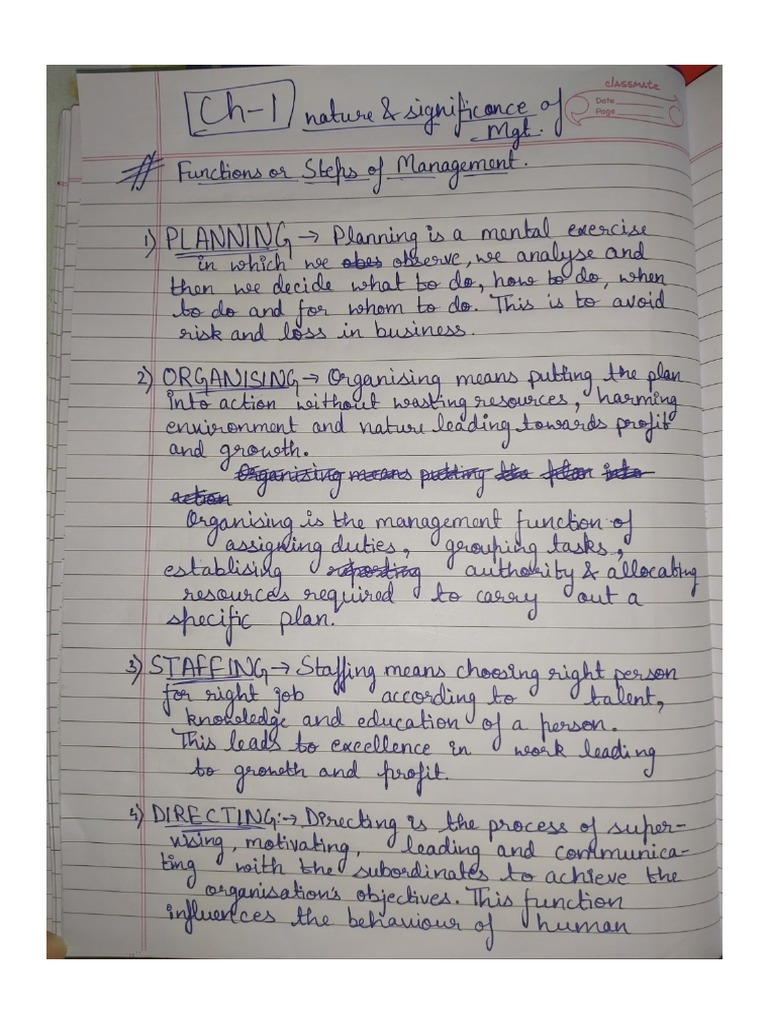 classmate
Date
Page
Ch-1 nature & significance of
Mgt.
# Functions or Steps of Management.
1) PLANNING → Planning is a mental exercise
in which we obes observe, we analyse and
then we decide what to do, how to do, when
to do and for whom to do. This is to avoid
risk and loss in business.
2) ORGANISING → Organising means putting the plan
into action without wasting resources, harming
environment and nature leading towards profit
and growth.
Organizing means putting the plan into
action
Organising is the management function of
assigning duties, grouping tasks,
establising reporting authority & allocating
resources required to carry out a
specific plan.
3) STAFFING → Staffing means choosing right person
for right job according to talent,
knowledge and education of a person.
This leads to excellence in work leading
to growth and profit.
4) DIRECTING :→ Directing is the process of super-
vising, motivating, leading and communica-
ting with the subordinates to achieve the
organisation's objectives. This function
influences the behaviour of human